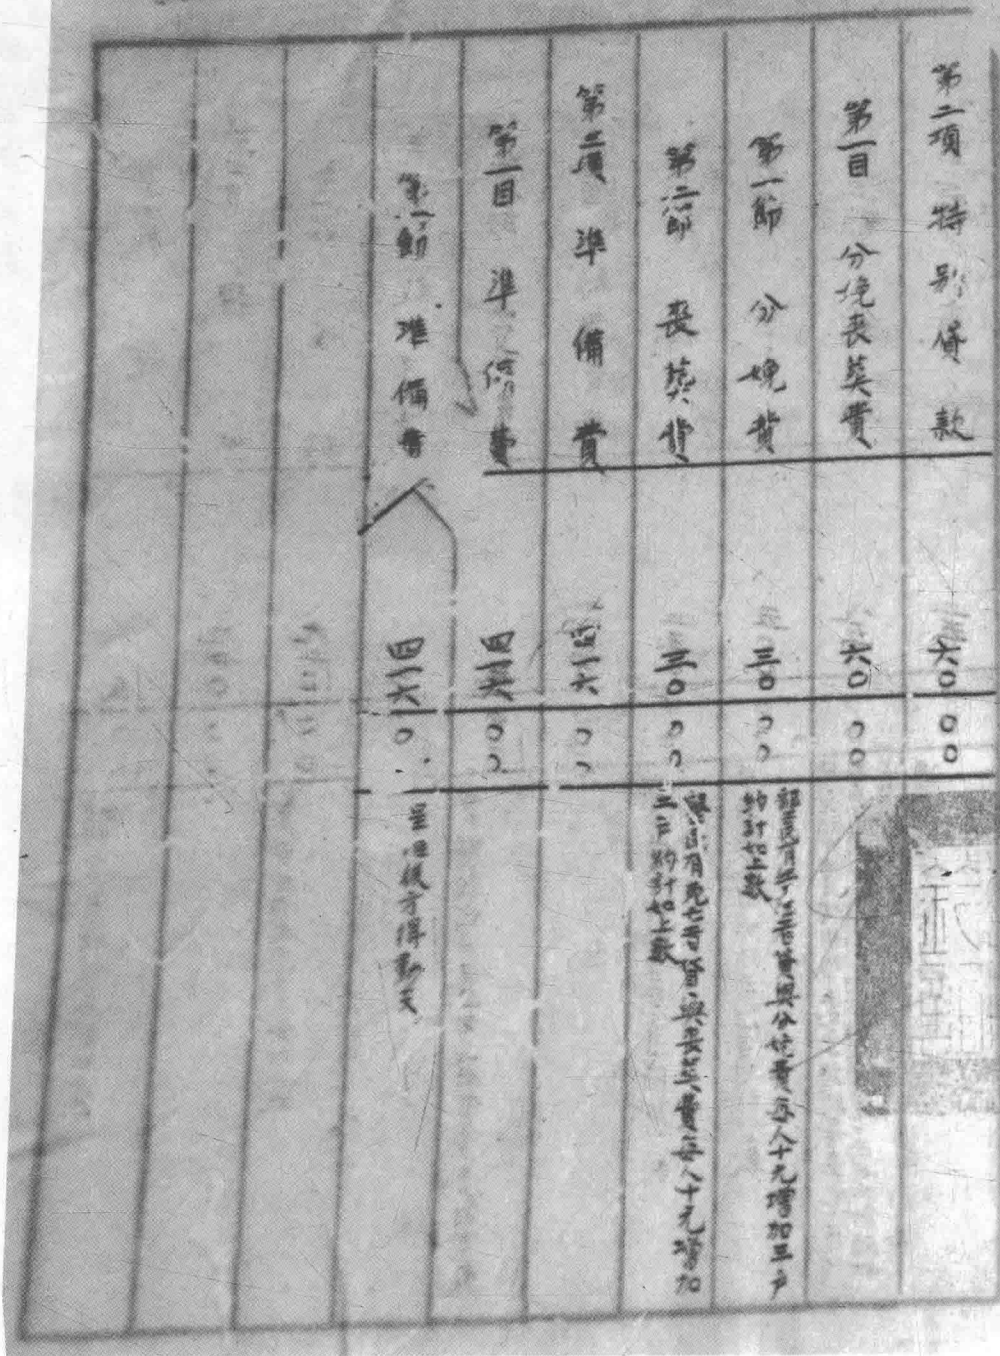 第二項 特別貸款 六〇 〇〇
第一目 分娩喪葬費 六〇 〇〇
第一節 分娩費 三〇 〇〇
貸與分娩費每人十元增加三戶
約計如上數
第二節 喪葬費 三〇 〇〇
有死亡者貸與喪葬費每人十元增加
三戶約計如上數
第三項 準備費 四一六 〇〇
第一目 準備費 四一六 〇〇
第一節 準備費 四一六 〇
呈准後才得動支